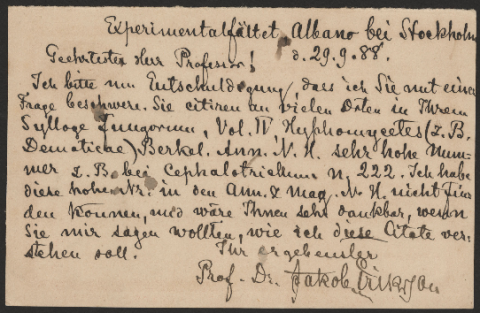 Experimentalfältet, Albano bei Stockholm
d. 29.9.88.
Geehrtester Herr Professor!
Ich bitte um Entschuldigung, dass ich Sie mit einer
Frage beschwere. Sie citiren an vielen Orten in Ihrem
Sylloge Fungorum, Vol. IV, Hyphomycetes (z. B.
Dematieae) Berkel. Ann. N. H. sehr hohe Num-
mer z. B. bei Cephalotrichum n. 222. Ich habe
diese hohe Nr. in den Ann. & Mag. N. H. nicht fin-
den können, und wäre Ihnen sehr dankbar, wenn
Sie mir sagen wollten, wie ich diese Citate ver-
stehen soll.
Ihr ergebenster
Prof. Dr. Jakob Eriksson